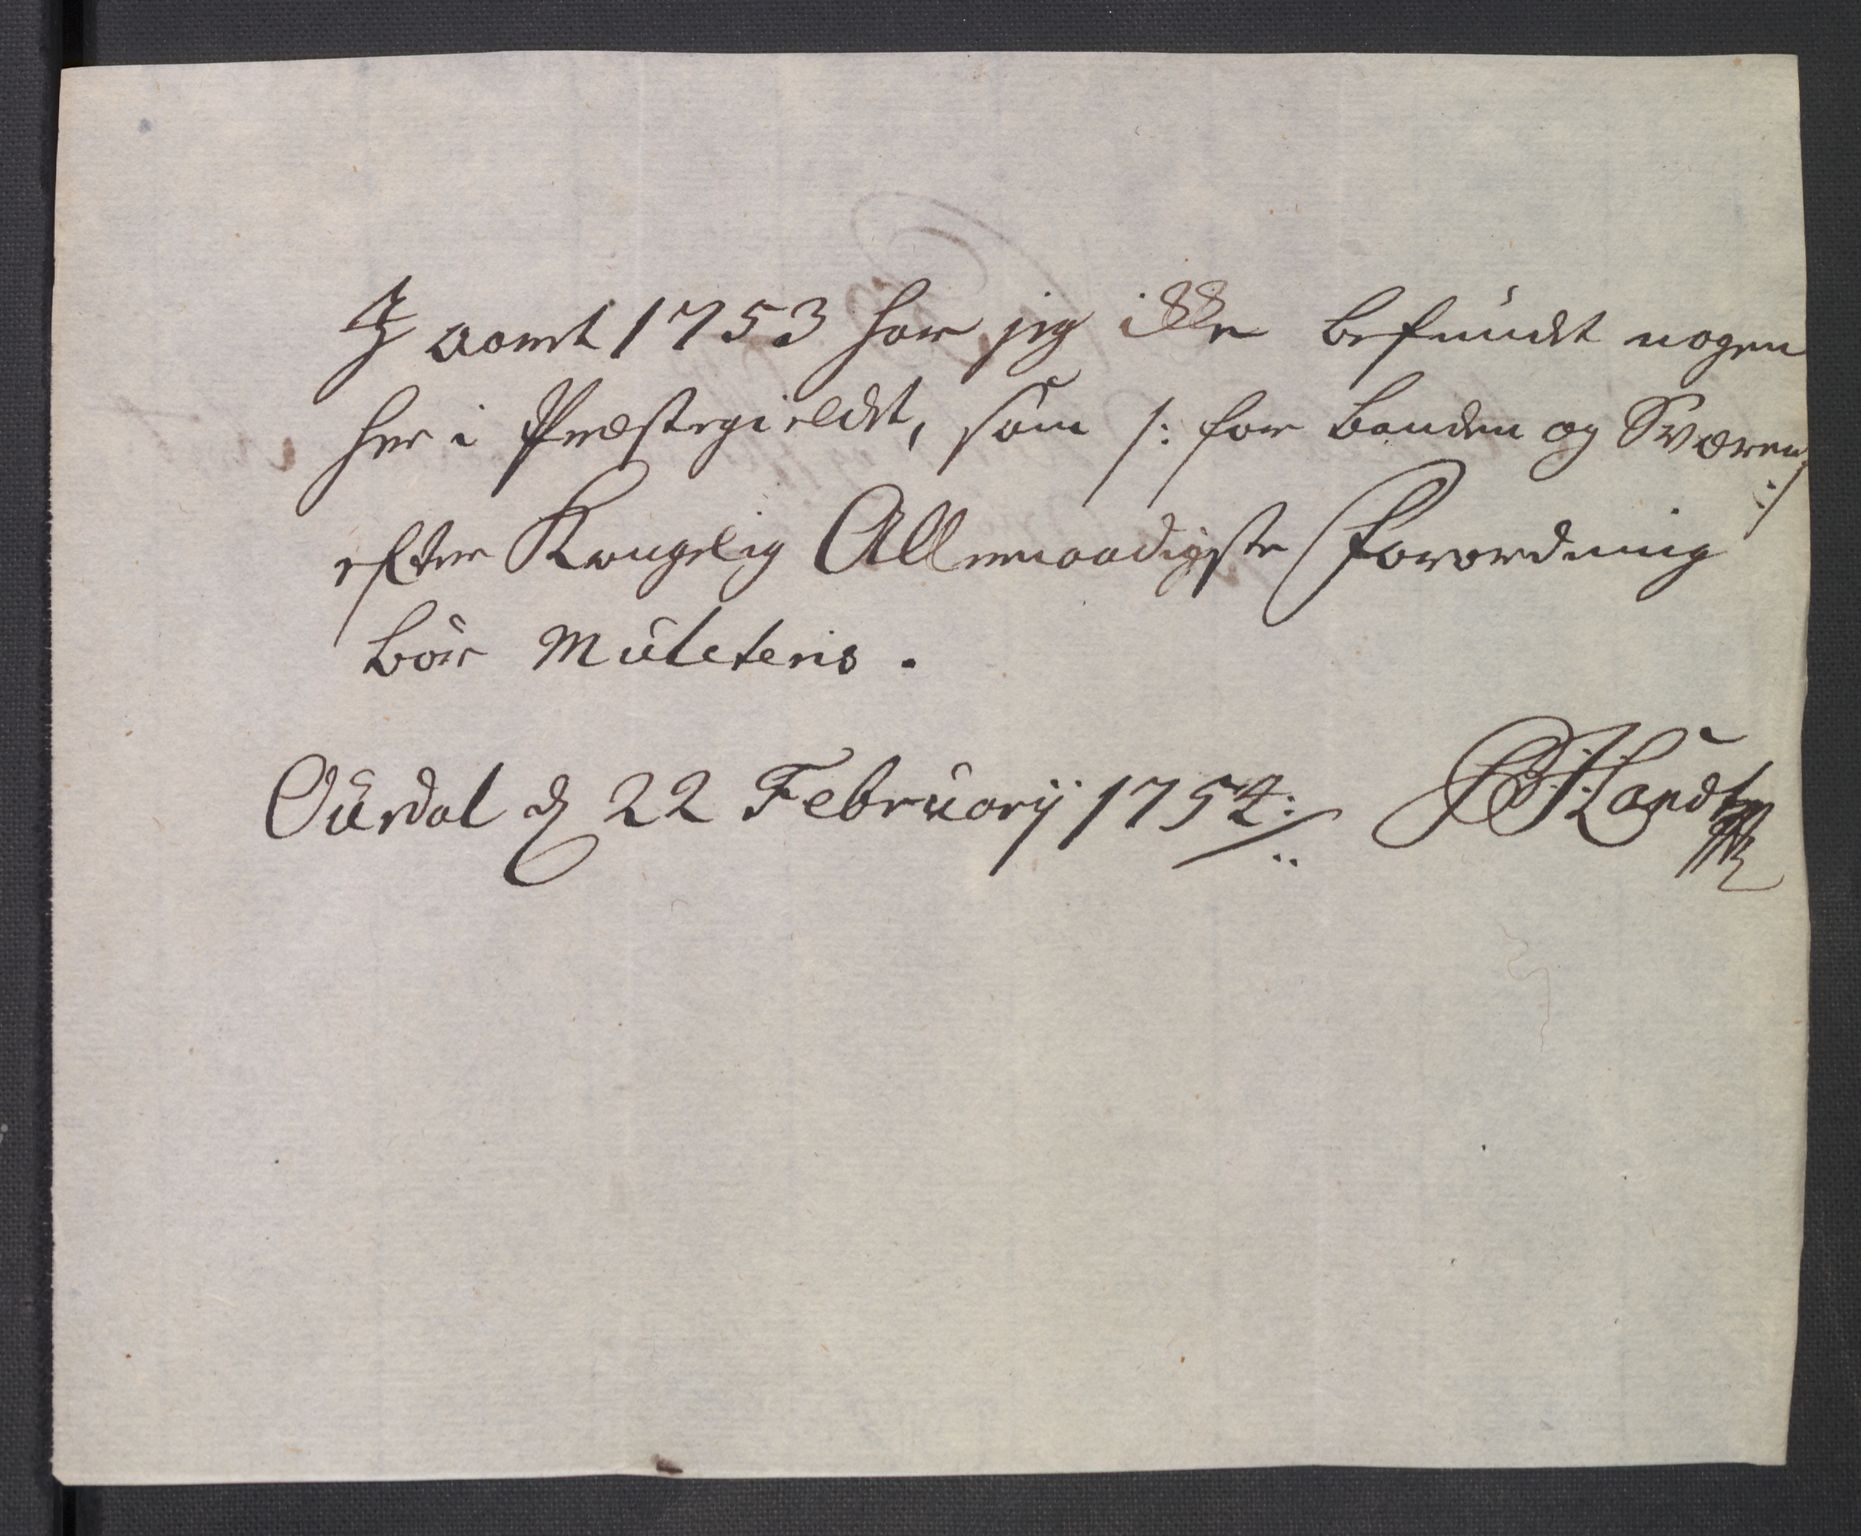 I aaret 1753 har jeg ikke befundet nogen
her i Præstegieldet, som /: for Banden og Sværen :/
efter Kongelig Allernaadigste Forordning
bør Mulcteris.
Ourdal d 22 Februarij 1754: